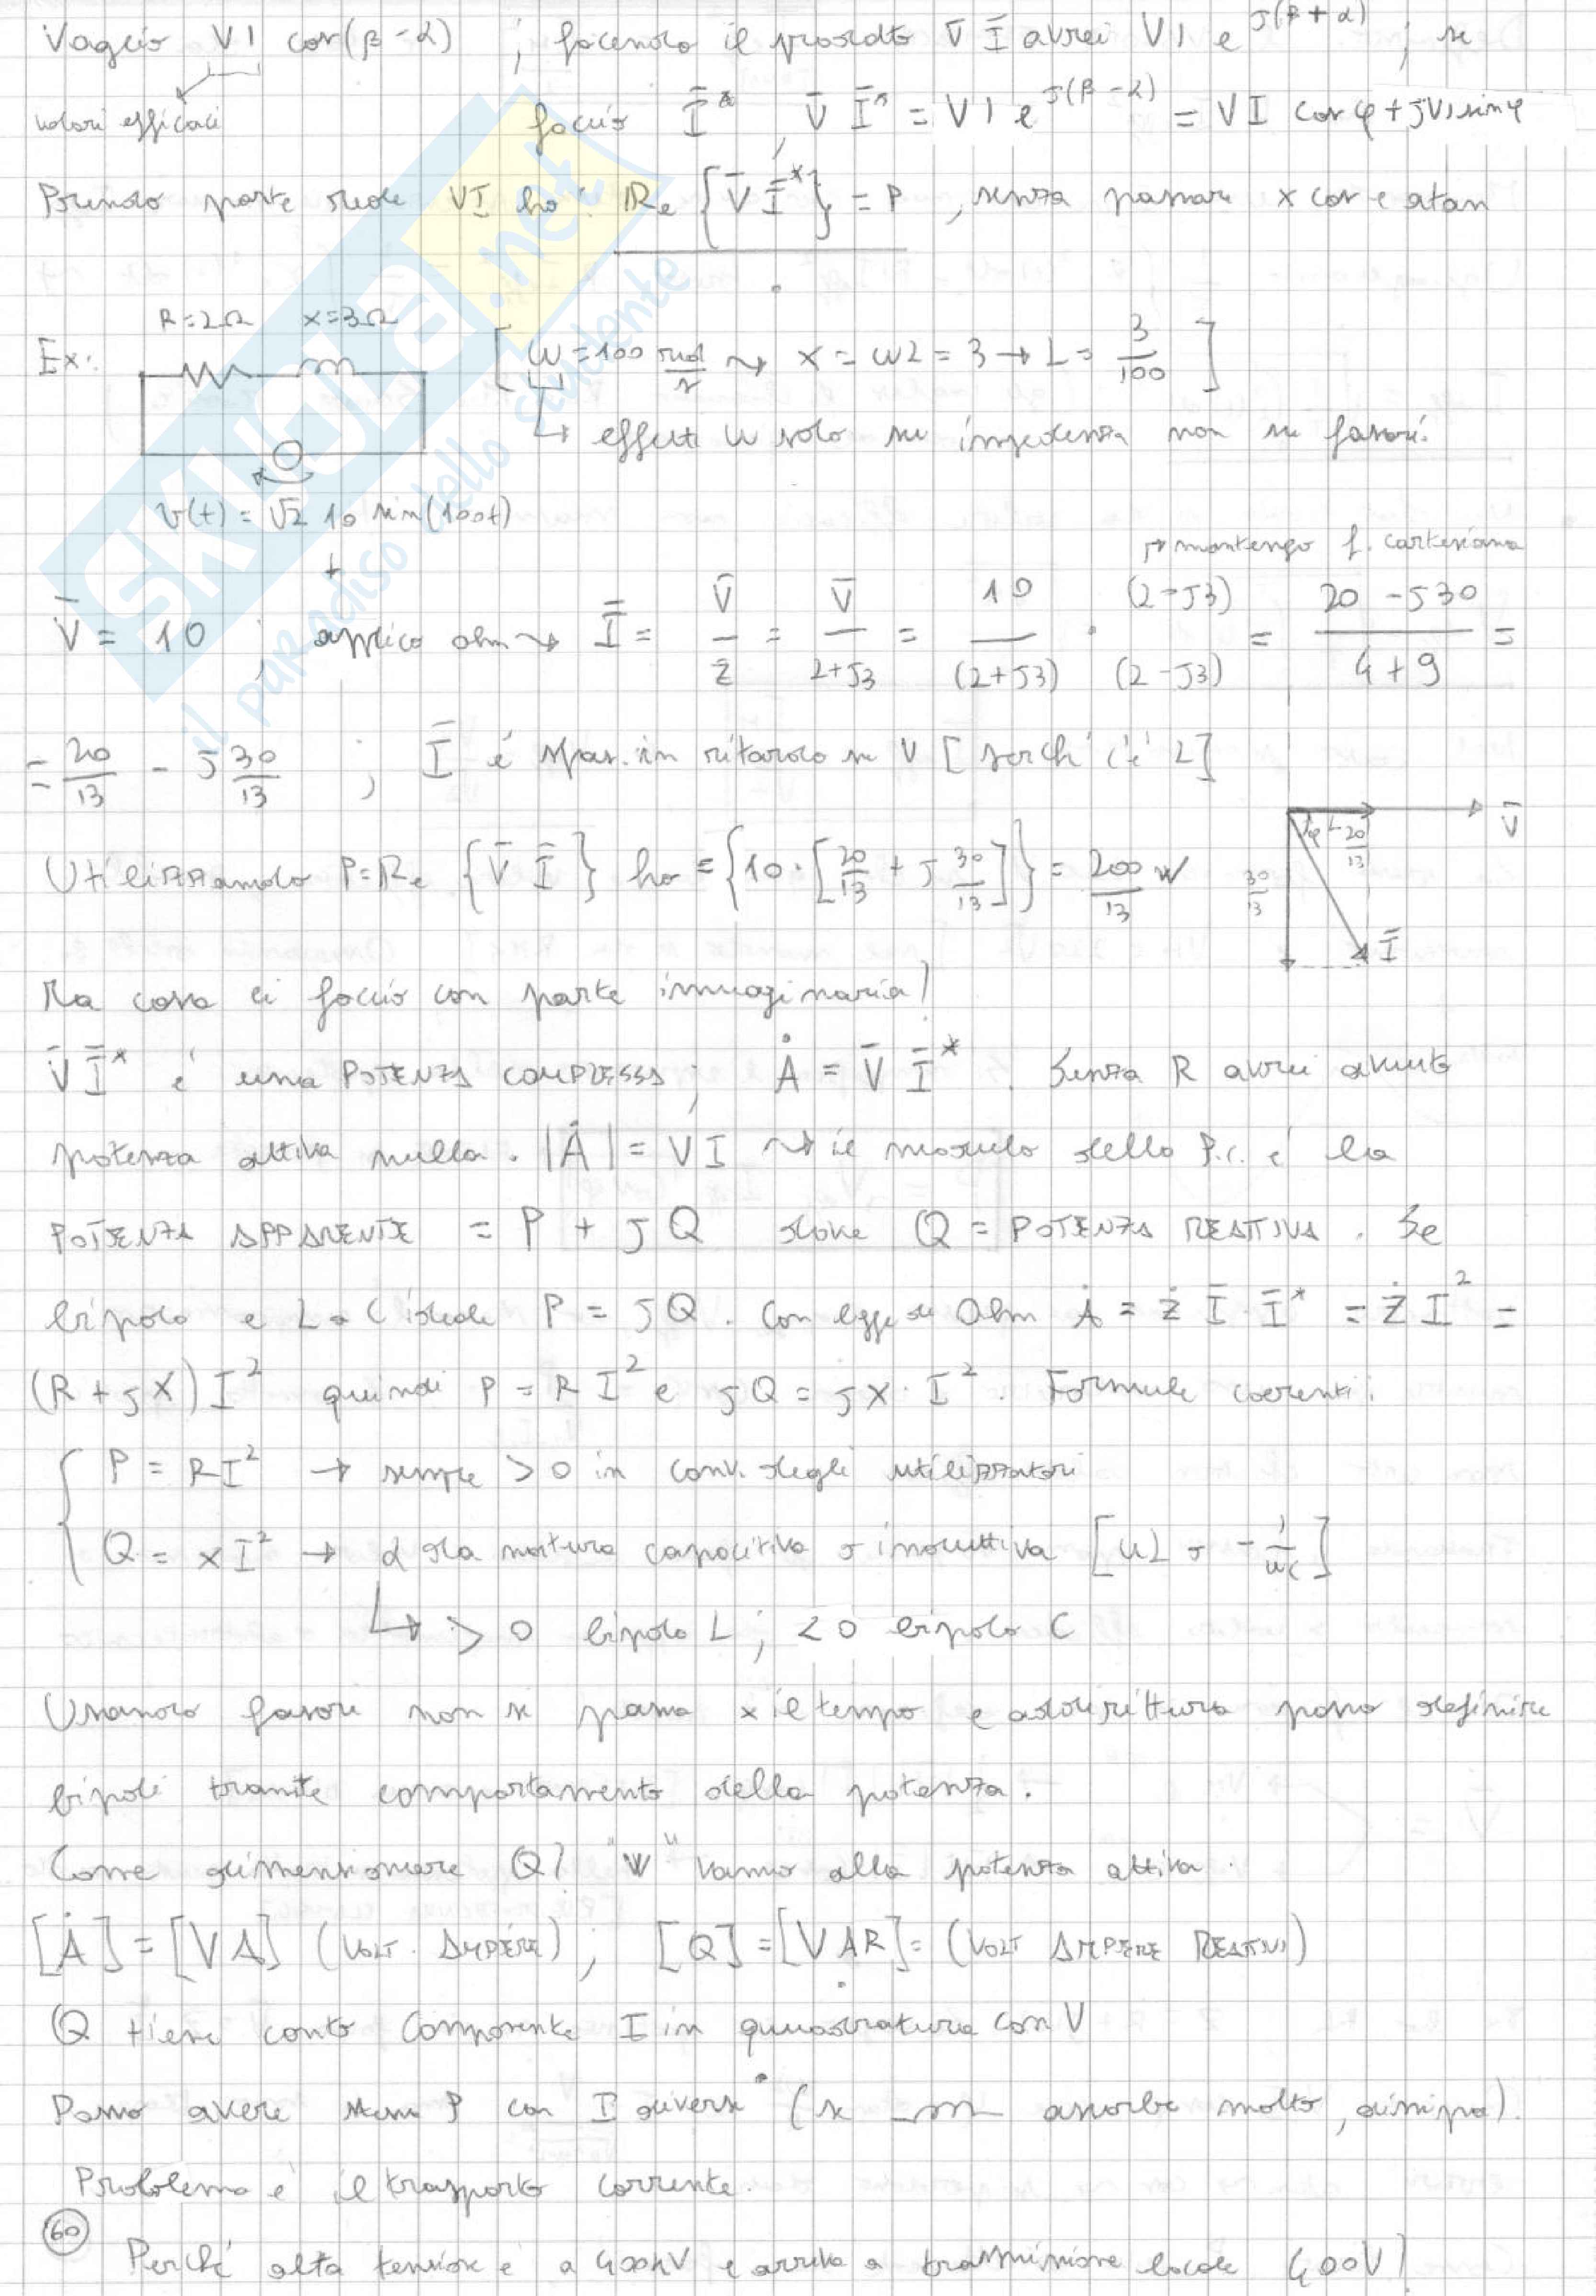 Voglio VI cos(β-α) ; facendo il prodotto V̄ Ī avrei VI e^J(β+α) ; se
valori efficaci faccio Ī*, V̄ Ī* = VI e^J(β-α) = VI cos φ + JVI sin φ
Prendo parte reale VI ho: Re {V̄ Ī*} = P , senza passare x cos e atan
R=2Ω x=3Ω
Ex: [ω=100 rad/s ⇝ x = ωL = 3 → L = 3/100]
↳ effetti ω solo su impedenza non su fasori.
v(t) = √2 10 sin(100t)
↓
↱ mantengo f. cartesiana
V̄ = 10 ; applico ohm ⇝ Ī = V̄/Z = V̄/(2+J3) = 10/(2+J3) · (2-J3)/(2-J3) = (20-J30)/(4+9) =
= 20/13 - J 30/13 ; Ī è sfas. in ritardo su V [perch' c'è L]
V̄
φ 20/13
Utilizzando P=Re {V̄ Ī} ho = {10·[20/13 + J 30/13]} = 200/13 W
30/13
Ī
Ma cosa ci faccio con parte immaginaria?
V̄ Ī* è una POTENZA COMPLESSA ; Ȧ = V̄ Ī* . Senza R avrei avuto
potenza attiva nulla. |Ȧ| = VI ⇝ il modulo della P.c. è la
POTENZA APPARENTE = P + JQ dove Q = POTENZA REATTIVA . Se
bipolo e L o C ideale P = JQ. Con legge di Ohm Ȧ = Ż Ī · Ī* = Ż I² =
(R + JX) I² quindi P = R I² e JQ = JX · I² . Formule coerenti:
{ P = RI² → sempre > 0 in conv. degli utilizzatori
Q = XI² → d dla natura capacitiva o induttiva [ωL o -1/ωC]
↳ > 0 bipolo L ; < 0 bipolo C
Usando fasori non si passa x il tempo e addirittura posso definire
bipoli tramite comportamento della potenza.
Come dimensionare Q? "W" vanno alla potenza attiva.
[Ȧ] = [VA] (VOLT · AMPÉRE) ; [Q] = [VAR] = (VOLT AMPERE REATTIVI)
Q tiene conto componente I in quadratura con V
Posso avere stessa P con I diverse (se assorbe molto, dissipa).
Problema è il trasporto corrente.
60
Perché alta tensione è a 400kV e arriva a trasmissione locale 400V?
SKUOLA.net
il paradiso dello studente